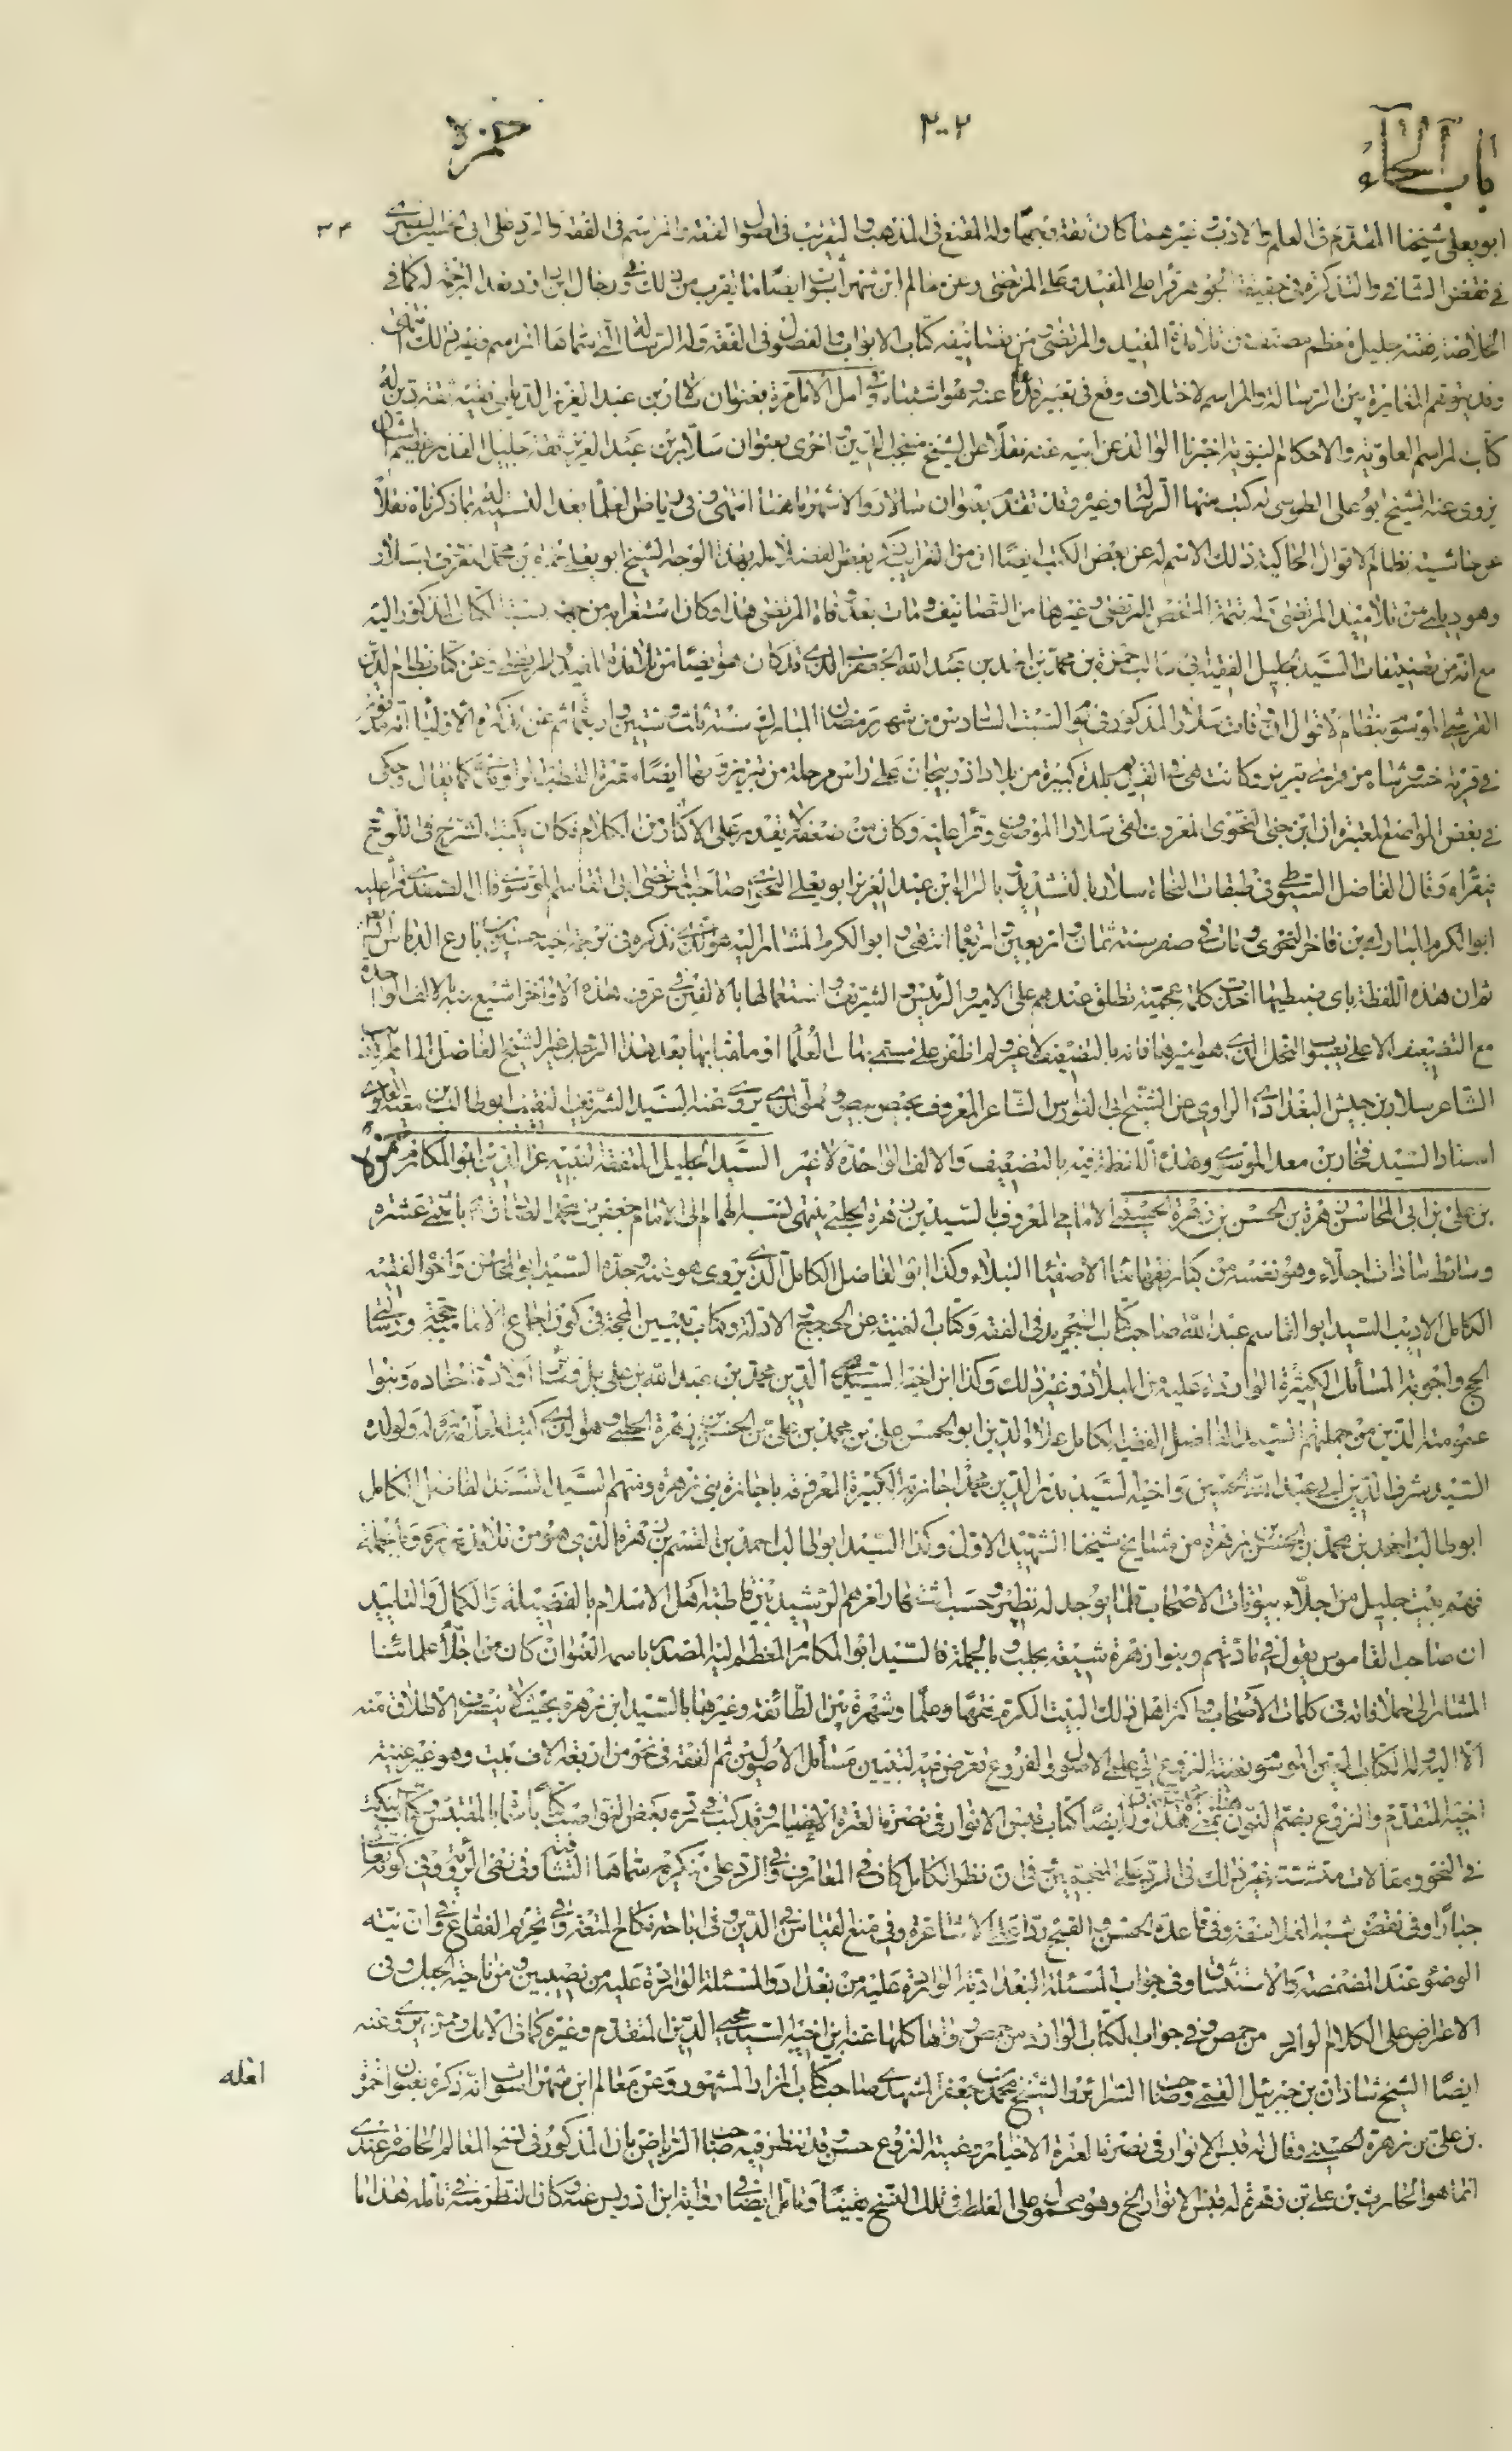 باب الحاء
٢٠٢
حمزة
ابويعلى شيخنا المقدم فى العلم والادب وغيرهما كان ثقة وجها وله المقنع فى المذهب والتقريب فى اصول الفقه والمراسم فى الفقه والرد على ابى الحسين البصرى
٣٤
فى نقض الشافى والتذكرة فى حقيقة الجوهر قرأ على المفيد وعلى المرتضى وعن معالم ابن شهرآشوب ايضا ما يقرب من ذلك وفى رجال ابن داود بعد الترجمة له كما فى
الخلاصة فقيه جليل معظم مصنف من تلامذة المفيد والمرتضى من تصانيفه كتاب الابواب والفصول فى الفقه وله الرسالة التى سماها المراسم وغير ذلك انتهى
وقد يتوهم المغايرة بين الرسالة والمراسم لاختلاف وقع فى تعبير عنه وهو اشتباه وفى امل الامل مرة بعنوان سلار بن عبد العزيز الديلمى فقيه ثقة دين له
كتاب المراسم العلوية والاحكام النبوية اخبرنا الوالد عن ابيه عنه نقلا عن الشيخ منتجب الدين واخرى بعنوان سلار بن عبد العزيز ثقة جليل القدر عظيم الشان
يروى عنه الشيخ ابو على الطوسى له كتب منها الرسالة وغيره وقد تقدم بعنوان سالار والاشهر ما هنا انتهى وفى رياض العلماء بعد التسمية له بما ذكرناه نقلا
عن حاشية نظام الاقوال الحاكية ذلك الاسم له عن بعض الكتب ايضا ان من الغرايب ذكر بعض الفضلاء له بهذا الوجه الشيخ ابو يعلى حمزة بن محمد المعروف بسلار
وهو ديلمى من تلاميذ المرتضى له تتمة الملخص للمرتضى وغيرها من التصانيف ومات بعد وفاة المرتضى هذا وكان استغرابه من جهة نسبة الكتاب المذكور اليه
مع انه من تصنيفات السيد الجليل الفقيه ابى طالب حمزة بن محمد بن احمد بن عبد الله الجعفرى الذى قد كان هو ايضا من تلامذة المفيد والمرتضى وعن كتاب نظام الدين
القرشى الموسوم بنظام الاقوال ان وفات سلار المذكور فى يوم السبت السادس من شهر رمضان المبارك سنة ثلث وستين واربعمائة ثم عن تذكرة الاولياء انه مدفون
فى قرية خسروشاه من قرى تبريز وكانت هى فى القديم بلدة كبيرة من بلاد اذربيجان على راس مرحلة من تبريز وبها ايضا مقبرة القطب الراوندى كما يقال وحكى
فى بعض المواضع المعتبرة ان ابن جنى النحوى المعروف لقى سلارا الموصى وقرأ عليه وكان من ضعفه لا يقدر على الاكثار من الكلام فكان يكتب الشرح فى اللوح
فيقراه وقال الفاضل السيوطى فى طبقات النحاة سلار بالتشديد بالراء ابن عبد العزيز ابو يعلى النحوى صاحب المرتضى ابى القاسم الموسوى قال الصفدى قرأ عليه
ابو الكرم المبارك بن فاخر النحوى ومات فى صفر سنة ثمان واربعين واربعمائة انتهى وابو الكرم المشار اليه هو الذى تذكره فى ترجمة اخيه حسين بن بارع الدباس
ثم ان هذه اللفظة باى ضبطيها اخذت كلمة عجمية تطلق عندهم على الامير والرئيس والشريف واستعمالها بالالفين فى عرف هذه الاواخر اشيع منه بالالف الواحدة
مع التضعيف الا على يعسوب النحل الذى هو اميرها فانه بالتضعيف لا غير ولم اظفر على متسمى بها من العلماء او ملقب بها بعد هذا الرجل غير الشيخ الفاضل الماهر
الشاعر سلار بن حبيش البغدادى الراوى عن الشيخ ابى الفوارس الشاعر المعروف بحيص بيص وهو الذى يروى عنه السيد الشريف النقيب ابو طالب بن معية العلوى
استاد السيد فخار بن معد الموسوى وهذه اللفظة فيه بالتضعيف والالف الواحدة لا غير السيد الجليل المتفقه النبيه عز الدين ابو المكارم حمزة
بن على بن ابى المحاسن زهرة بن الحسن بن زهرة الحسينى الامامى المعروف بالسيد بن زهرة الحلبى ينتهى نسبه الهمام الى الامام جعفر بن محمد الصادق باثنى عشرة
وسائط سادات اجلاء وهو نفسه من كبار فقهائنا الاصفياء النبلاء وكذا ابوه الفاضل الكامل الذى يروى هو عنه وجده السيد ابو المحاسن واخوه الفقيه
الكامل الاديب السيد ابو القاسم عبد الله صاحب كتاب التجريد فى الفقه وكتاب الغنية عن الحجج والادلة وكتاب تبيين المحجة فى كون اجماع الامامية حجة ورسالة
الحج واجوبة المسائل الكثيرة الواردة عليه من البلاد وغير ذلك وكذا ابن اخيه السيد محيى الدين محمد بن عبد الله بن على بل وسائر اولاده احفاده وبنوا
عمومته الذين من جملتهم السيد الفاضل الفقيه الكامل علاء الدين ابو الحسن على بن محمد بن على بن الحسن بن زهرة الحلبى وهو الذى كتب العلامة له ولولده
السيد شرف الدين ابى عبد الله الحسين واخيه السيد بدر الدين محمد اجازته الكبيرة المعروفة باجازة بنى زهرة ومنهم السيد السند الفاضل الكامل
ابو طالب احمد بن محمد بن الحسن بن زهرة من مشايخ شيخنا الشهيد الاول وكذا السيد ابو طالب احمد بن القسم بن زهرة الذى هو من تلامذة وبالجملة
فهم بيت جليل من اجلاء بيوتات الاصحاب قلما يوجد له نظير وحسب اشتهار امرهم الرشيد بين قاطبة اهل الاسلام بالفضيلة والكمال والتاييد
ان صاحب القاموس يقول فى مادتهم وبنوا زهرة شيعة بحلب وبالجملة فالسيد ابو المكارم المعظم اليه المصدر باسمه العنوان كان من اجلاء علمائنا
المشار الى خلافاته فى كلمات الاصحاب واكثر اهل ذلك البيت الكريم فقها وعلما وشهرة بين الطائفة وغيرها بالسيد ابن زهرة بحيث لا ينصرف الاطلاق منه
الا اليه وله الكتاب المتين الموسوم بغنية النزوع الى علمى الاصول والفروع تعرض فيه لتبيين مسائل الاصولين ثم الفقه فى نحو من اربعة الاف بيت وهو غير غنية
اخيه المتقدم والنزوع بضم النون هذا وله ايضا كتاب قبس الانوار فى نصرة العترة الاخيار وقد كتب فى رده بعض النواصب كتابا سماه المقتبس وكتاب النكت
فى النحو ومقالات متشتتة غير ذلك فى الرد على المنجمين فى ان نظر الكامل كاف فى المعارف وفى الرد على منكريه سماها الشافى فى نفى الرؤية وفى كونه تعالى
جبارا وفى نقض شبه الفلاسفة وفى قاعدة الحسن والقبح ردا على الاشاعرة وفى منع القياس فى الدين وفى اباحة نكاح المتعة وفى تحريم الفقاع وفى ان نية
الوضوء عند المضمضة والاستنشاق وفى جواب المسئلة البغدادية الواردة عليه من بغداد والمسئلة الواردة عليه من نصيبين ومن ناحية الجبل وفى
الاعتراض على الكلام الوارد من حمص وفى جواب الكتاب الوارد من حمص رواها كلها عنه ابن اخيه السيد محيى الدين المتقدم وغيره كما فى الامل وممن يروى عنه
ايضا الشيخ شاذان بن جبرئيل القمى وصاحب السرائر والشيخ محمد بن جعفر المشهدى صاحب كتاب المزار المشهور وعن معالم ابن شهرآشوب انه ذكره بعنوان حمزة
بن على بن زهرة الحسينى وقال له قبس الانوار فى نصرة العترة الاخيار وغنية النزوع حسن وقد تنظر فيه صاحب الرياض بان المذكور فى نسخ المعالم الحاضر عندى
انما هو الحارث بن على بن زهرة له قبس الانوار الخ وهو محمول على الغلط فى تلك النسخ يقينا وتامل ايضا فى رواية ابن ادريس عنه وكان النظر منه فى تامله هذا ما
افله